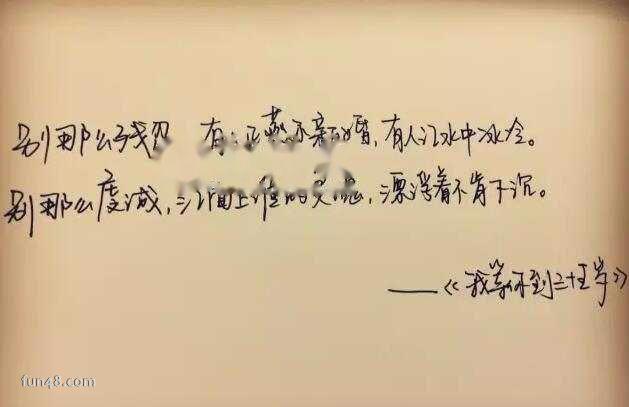 别那么残忍 有 正燕尔新婚,有人江水中冰冷。
别那么虔诚,江面上谁的灵魂,漂浮着不肯下沉。
——《我等你到三十五岁》
fun48.com